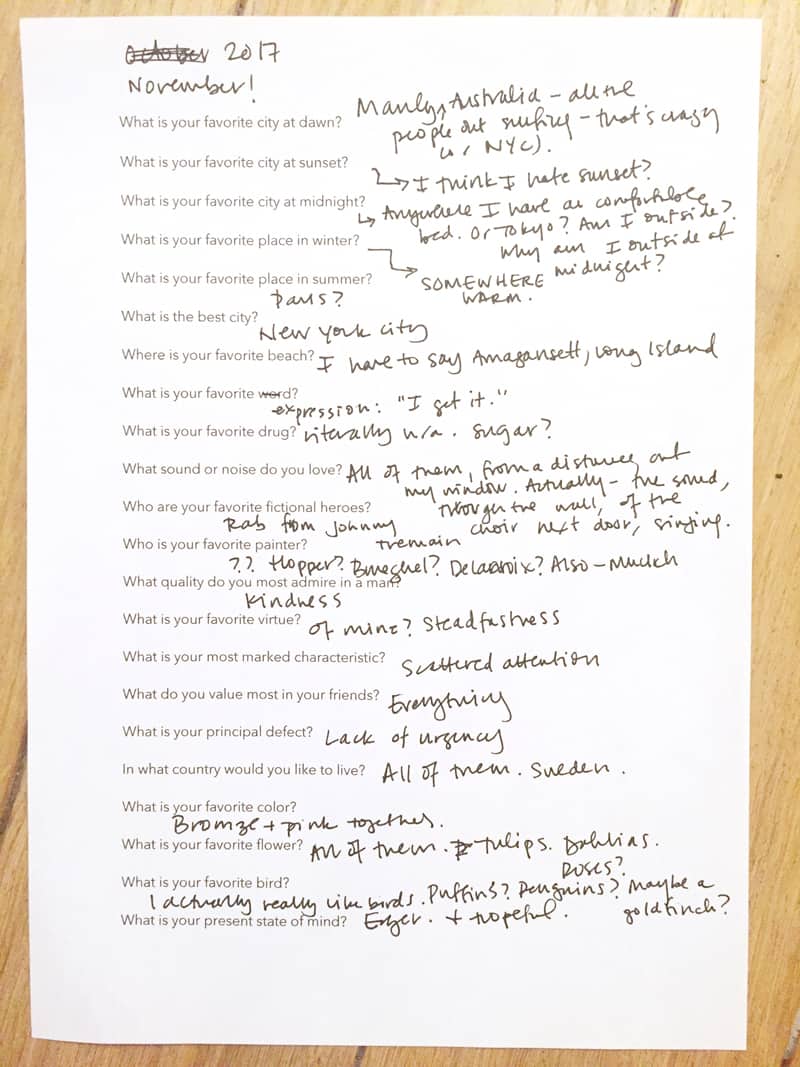 October 2017
November!
What is your favorite city at dawn? Manly, Australia – all the
people out surfing – that's crazy
(w/ NYC).
What is your favorite city at sunset?
I think I hate sunset?
What is your favorite city at midnight? Anywhere I have a comfortable
bed. Or Tokyo? Am I outside?
Why am I outside at
midnight?
What is your favorite place in winter?
SOMEWHERE
WARM.
What is your favorite place in summer?
Paris?
What is the best city?
New York City
Where is your favorite beach? I have to say Amagansett, Long Island
What is your favorite word?
expression: "I get it."
What is your favorite drug? Literally n/a. Sugar?
What sound or noise do you love? All of them, from a distance, out
my window. Actually – the sound,
through the wall, of the
choir next door, singing.
Who are your favorite fictional heroes?
Rab from Johnny
Tremain
Who is your favorite painter?
?? Hopper? Brueghel? Delacroix? Also – Munch
What quality do you most admire in a man?
Kindness
What is your favorite virtue? Of mine? Steadfastness
What is your most marked characteristic? Scattered attention
What do you value most in your friends? Everything
What is your principal defect? Lack of urgency
In what country would you like to live? All of them. Sweden.
What is your favorite color?
Bronze + pink together.
What is your favorite flower? All of them. Tulips. Dahlias.
Roses?
What is your favorite bird?
I actually really like birds. Puffins? Penguins? Maybe a
goldfinch?
What is your present state of mind? Eager. + hopeful.